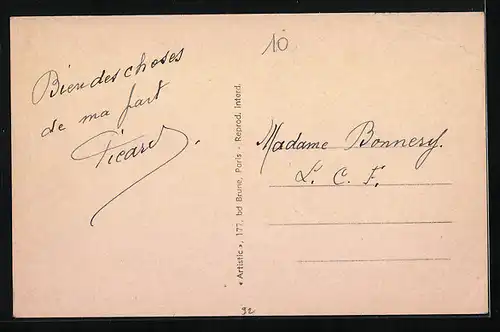 10
Bien des choses
de ma part
Picard
« Artistic », 177, bd Brune, Paris - Reprod. interd.
Madame Bonnery.
L. C. F.
32